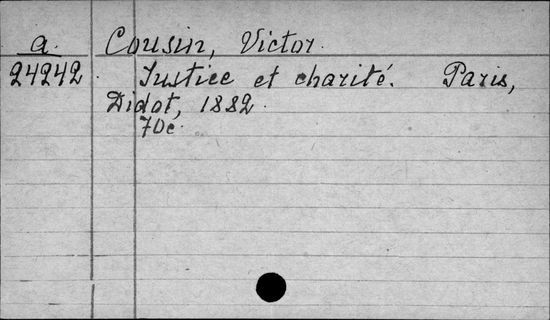 a. Cousin, Victor.
24242 Justice et charité. Paris,
Didot, 1882.
70c.